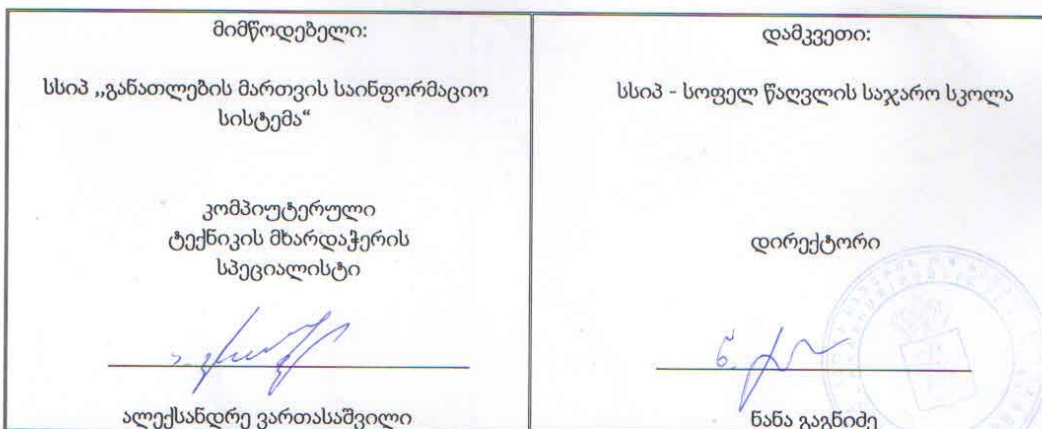 მიმწოდებელი:
სსიპ „განათლების მართვის საინფორმაციო
სისტემა“
კომპიუტერული
ტექნიკის მხარდაჭერის
სპეციალისტი
ალექსანდრე ვართასაშვილი
დამკვეთი:
სსიპ - სოფელ წაღვლის საჯარო სკოლა
დირექტორი
ნ.
ნანა გაგნიძე